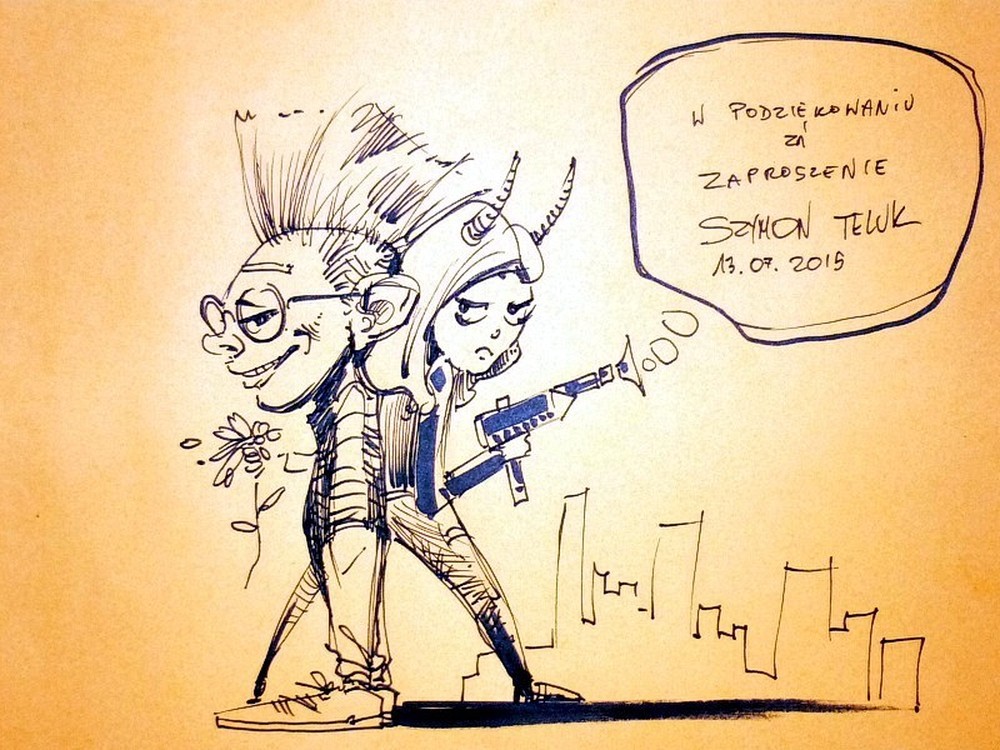 W PODZIĘKOWANIU
ZA
ZAPROSZENIE
SZYMON TELUK
13.07.2015